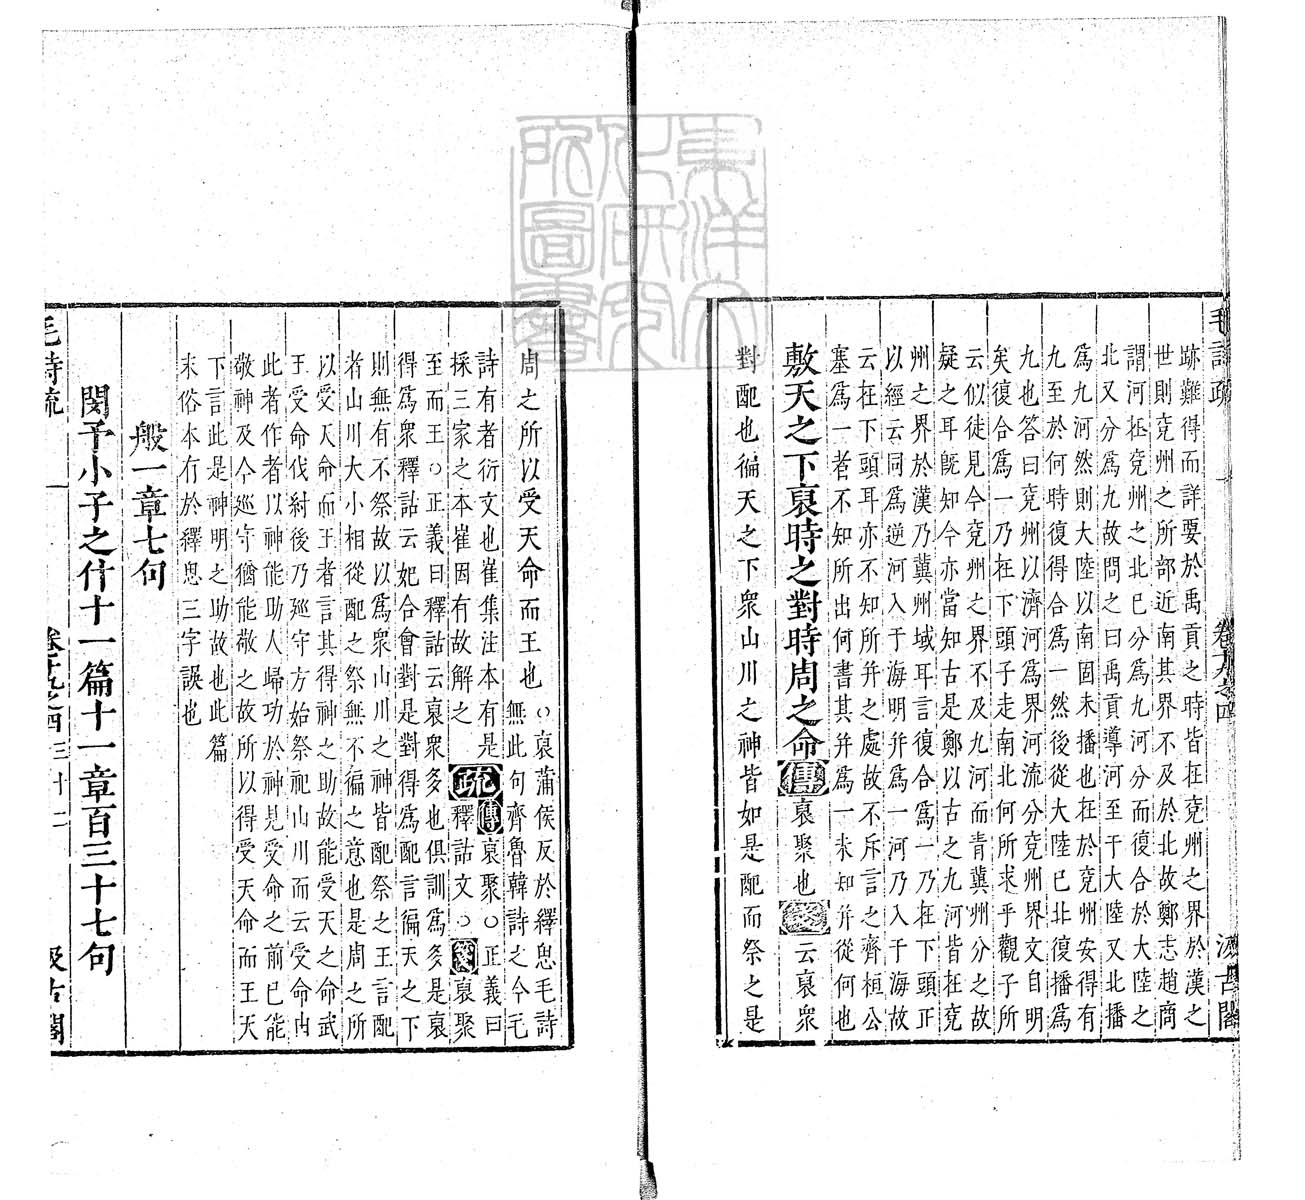 東洋文化研究所圖書
毛詩疏 卷十九之四 汲古閣
跡難得而詳要於禹貢之時皆在兗州之界於漢之
世則兗州之所部近南其界不及於北故鄭志趙商
謂河在兗州之北已分爲九河分而復合於大陸之
北又分爲九故問之曰禹貢導河至于大陸又北播
爲九河然則大陸以南固未播也在於兗州安得有
九至於何時復得合爲一然後從大陸已北復播爲
九也答曰兗州以濟河爲界河流分兗州界文自明
矣復合爲一乃在下頭子走南北何所求乎觀子所
云似徒見今兗州之界不及九河而青冀州分之故
疑之耳旣知今亦當知古是鄭以古之九河皆在兗
州之界於漢乃冀州域耳言復合爲一乃在下頭正
以經云同爲逆河入于海明并爲一河乃入于海故
云在下頭耳亦不知所并之處故不斥言之齊桓公
塞爲一者不知所出何書其并爲一未知并從何也
敷天之下裒時之對時周之命傳裒聚也箋云裒衆
對配也徧天之下衆山川之神皆如是配而祭之是
周之所以受天命而王也
○裒蒲侯反於繹思毛詩
無此句齊魯韓詩之今毛
詩有者衍文也崔集注本有是
採三家之本崔因有故解之
疏傳裒聚○正義曰
釋詁文○箋裒聚
至而王○正義曰釋詁云裒衆多也俱訓爲多是裒
得爲衆釋詁云妃合會對是對得爲配言徧天之下
則無有不祭故以爲衆山川之神皆配祭之王言配
者山川大小相從配之祭無不徧之意也是周之所
以受天命而王者言其得神之助故能受天之命武
王受命伐紂後乃廵守方始祭祀山川而云受命由
此者作者以神能助人歸功於神見受命之前已能
敬神及今廵守猶能敬之故所以得受天命而王天
下言此是神明之助故也此篇
末俗本有於繹思三字誤也
般一章七句
閔予小子之什十一篇十一章百三十七句
毛詩疏 卷十九之四 三十二 汲古閣